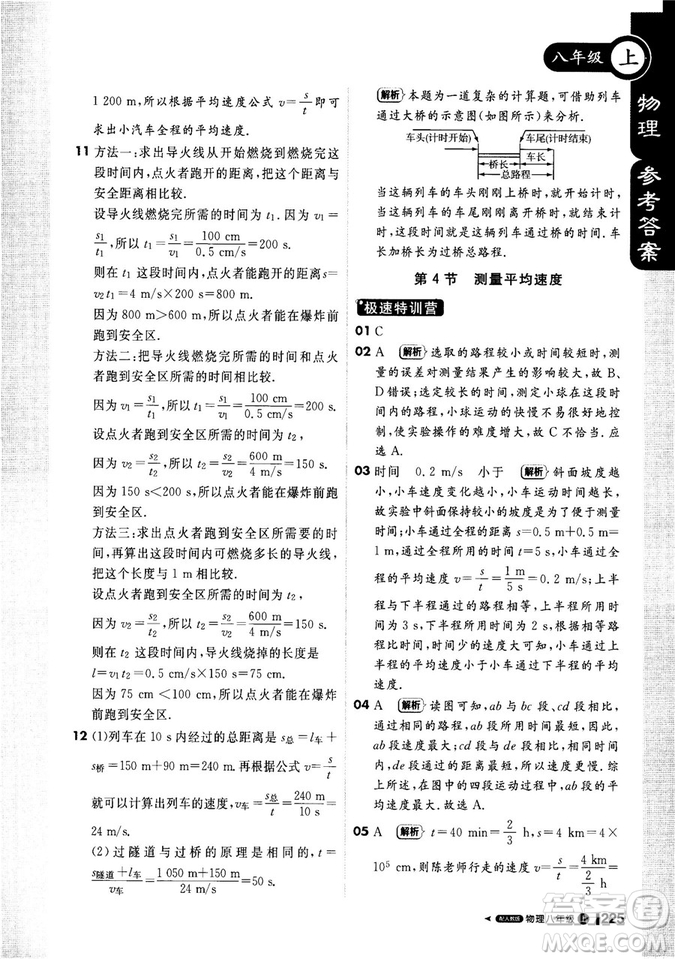 八年级 上
物理 参考答案
1 200 m，所以根据平均速度公式 v=s/t 即可
求出小汽车全程的平均速度.
11 方法一：求出导火线从开始燃烧到燃烧完这
段时间内，点火者跑开的距离，点火者跑开的距离与
安全距离相比较.
设导火线燃烧完所需的时间为 t₁. 因为 v₁=
s₁/t₁，所以 t₁=s₁/v₁=100 cm/0.5 cm/s=200 s.
则在 t₁ 这段时间内，点火者能跑开的距离 s=
v₂t₁=4 m/s×200 s=800 m.
因为 800 m>600 m，所以点火者能在爆炸前
跑到安全区.
方法二：把导火线燃烧的时间和点火者跑到
安全区所需的时间相比较.
因为 v₁=s₁/t₁，所以 t₁=s₁/v₁=100 cm/0.5 cm/s=200 s.
设点火者跑到安全区所需的时间为 t₂，
因为 v₂=s₂/t₂，所以 t₂=s₂/v₂=600 m/4 m/s=150 s.
因为150 s<200 s，所以点火者能在爆炸前跑
到安全区.
方法三：先求出点火者跑到安全区所需的时
间，再算出在这段时间内可燃烧多长的导火线，
把这个长度与 1 m 相比较.
设点火者跑到安全区所需的时间为 t₂，
因为 v₂=s₂/t₂，所以 t₂=s₂/v₂=600 m/4 m/s=150 s.
在这段时间内，导火线烧掉的长度是
l=v₁t₂=0.5 cm/s×150 s=75 cm.
因为 75 cm<100 cm，所以点火者能在爆炸
前跑到安全区.
12 (1)列车在 10 s 内经过的总距离是 s总=l车+
s桥=150 m+90 m=240 m. 再根据公式 v=s/t
就可以计算出列车的速度，v车=s总/t=240 m/10 s=
24 m/s.
(2)过隧道与过桥的原理是相同的，t=
s隧道+l车/v车=1 050 m+150 m/24 m/s=50 s.
解析 本题为一道复杂的计算题，可借助列车
通过大桥的示意图(如图所示)来分析.
车头(计时开始) 车尾(计时结束)
桥长 车长
总路程
当这辆列车的车头刚刚上桥时，就开始计时，
当这辆列车的车尾刚刚离开桥时，计时结束.
从图中可以看出，当这辆列车全部过桥时，列
车长加桥长为过桥总路程.
第 4 节 测量平均速度
极速特训营
01 C
02 A 解析 选取的路程较小或时间较短，测
量的误差对测量结果产生的影响较大，故 B、
D 错误；选定较长的时间，测定小球在这段时
间内的路程，小球运动的快慢不易很好地控
制，使实验操作的难度加大，故 C 不恰当. 应
选 A.
03 时间 0.2 m/s 小于 解析 斜面坡度越
小，小车速度变化越小，小车运动时间越长，
故实验中斜面保持较小的坡度是为了方便测
量时间；小车通过全程的距离 s=0.5 m+0.5 m
=1 m，通过全程所用的时间 t=5 s，小车通过
全程的平均速度 v=s/t=1 m/5 s=0.2 m/s；上半程
和下半程通过的路程相等，上半程所用时间
为 3 s，下半程所用时间为 2 s，由于前后半路
程比时间，可知时间越短，速度越大，小车通过上
半程的平均速度小于小车通过下半程的平均
速度.
04 A 解析 读图可知，ab 与 bc 段、cd 段相比，
通过相同的路程，ab 段所用时间最短，因此
ab 段速度最大；ab 段与 de 段相比，所用时间
相同，ab 段通过的距离大于 de 段，因此 ab 段
与 de 段相比，ab 段速度最大. 综
上所述，在图中的四段运动过程中，ab 段的平
均速度最大. 故选 A.
05 A 解析 t=40 min=2/3 h，s=4 km=4×
10⁵ cm，则陈老师行走的速度 v=s/t=4 km/2/3 h=
配人教版 物理八年级 上 225
MXQE.COM